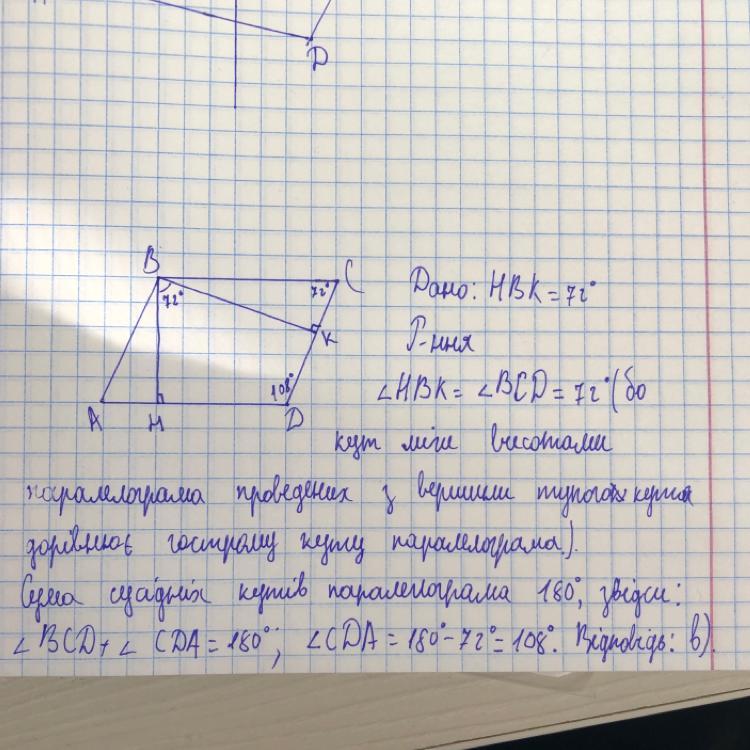 D
B
C
72°
72°
K
108°
A
H
D
Дано: HBK = 72°
Р-ння
∠HBK = ∠BCD = 72° (бо
кут між висотами
паралелограма проведених з вершини тупого кута
дорівнює гострому куту паралелограма).
Сума сусідніх кутів паралелограма 180°, звідси:
∠BCD + ∠CDA = 180°; ∠CDA = 180° - 72° = 108°. Відповідь: в).